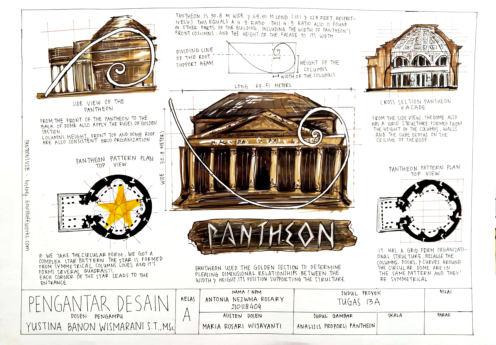 PANTHEON IS 30.8 M WIDE
THIS EQUALS A 4:9 RATIO. THIS 4:9 RATIO ALSO IS FOUND
IN OTHER PARTS OF THE BUILDING, INCLUDING THE WIDTH OF PANTHEON'S
FRONT COLUMNS AND THE HEIGHT OF THE FACADE TO ITS WIDTH
DIVIDING LINE
OF THE ROOF
SUPPORT BEAM
HEIGHT OF THE
COLUMNS
WIDTH OF THE COLUMNS
SIDE VIEW OF THE
PANTHEON
FROM THE FRONT OF THE PANTHEON TO THE
BACK OF DOME ALSO APPLY THE RULES OF GOLDEN
SECTION
COLUMNS HEIGHT, FRONT TOP AND DOME ROOF
ARE ALSO CONSISTENT GRID ORGANIZATION
LONG 69.51 METERS
WIDE 30.8 METERS
CROSS SECTION PANTHEON
FACADE
FROM THE SIDE VIEW THE DOME ALSO
HAS A GRID STRUCTURE FORMED FROM
THE HEIGHT OF THE COLUMNS, WALLS
AND THE CUBE DETAIL ON THE
CEILING OF THE ROOF
PANTHEON PATTERN PLAN
TOP VIEW
IF WE TAKE THE CIRCULAR FORM, WE GOT A
COMPLEX STAR PATTERN. THE STAR IS FORMED
FROM SYMMETRICAL COLUMNS LINES AND IT
FORMS SEVERAL QUADRASTI
EACH CORNER OF THE STAR LEADS TO THE
ENTRANCE
PANTHEON
PANTHEON USED THE GOLDEN SECTION TO DETERMINE
PLEASING DIMENSIONAL RELATIONSHIPS BETWEEN THE
WIDTH & HEIGHT ITS POSITION SUPPORTING THE STRUCTURE
PANTHEON PATTERN PLAN
TOP VIEW
IT HAS A GRID FORM ORGANIZATIONAL
STRUCTURE, BECAUSE THE
COLUMNS, DOORS, & CURVES AROUND
THE CIRCULAR DOME ARE IN
THE SAME PATTERN AND THEY
ARE SYMMETRICAL
PENGANTAR DESAIN
DOSEN PENGAMPU
YUSTINA BANON WISMARANI S.T., MSc.
KELAS
A
NAMA / NPM
ANTONIA NEZWHA ROSARY
ASISTEN DOSEN
MARIA ROSARI WIJAYANTI
JUDUL PROYEK
TUGAS 13A
JUDUL GAMBAR
ANALISIS PROPORSI PANTHEON
SKALA
NILAI
PARAF